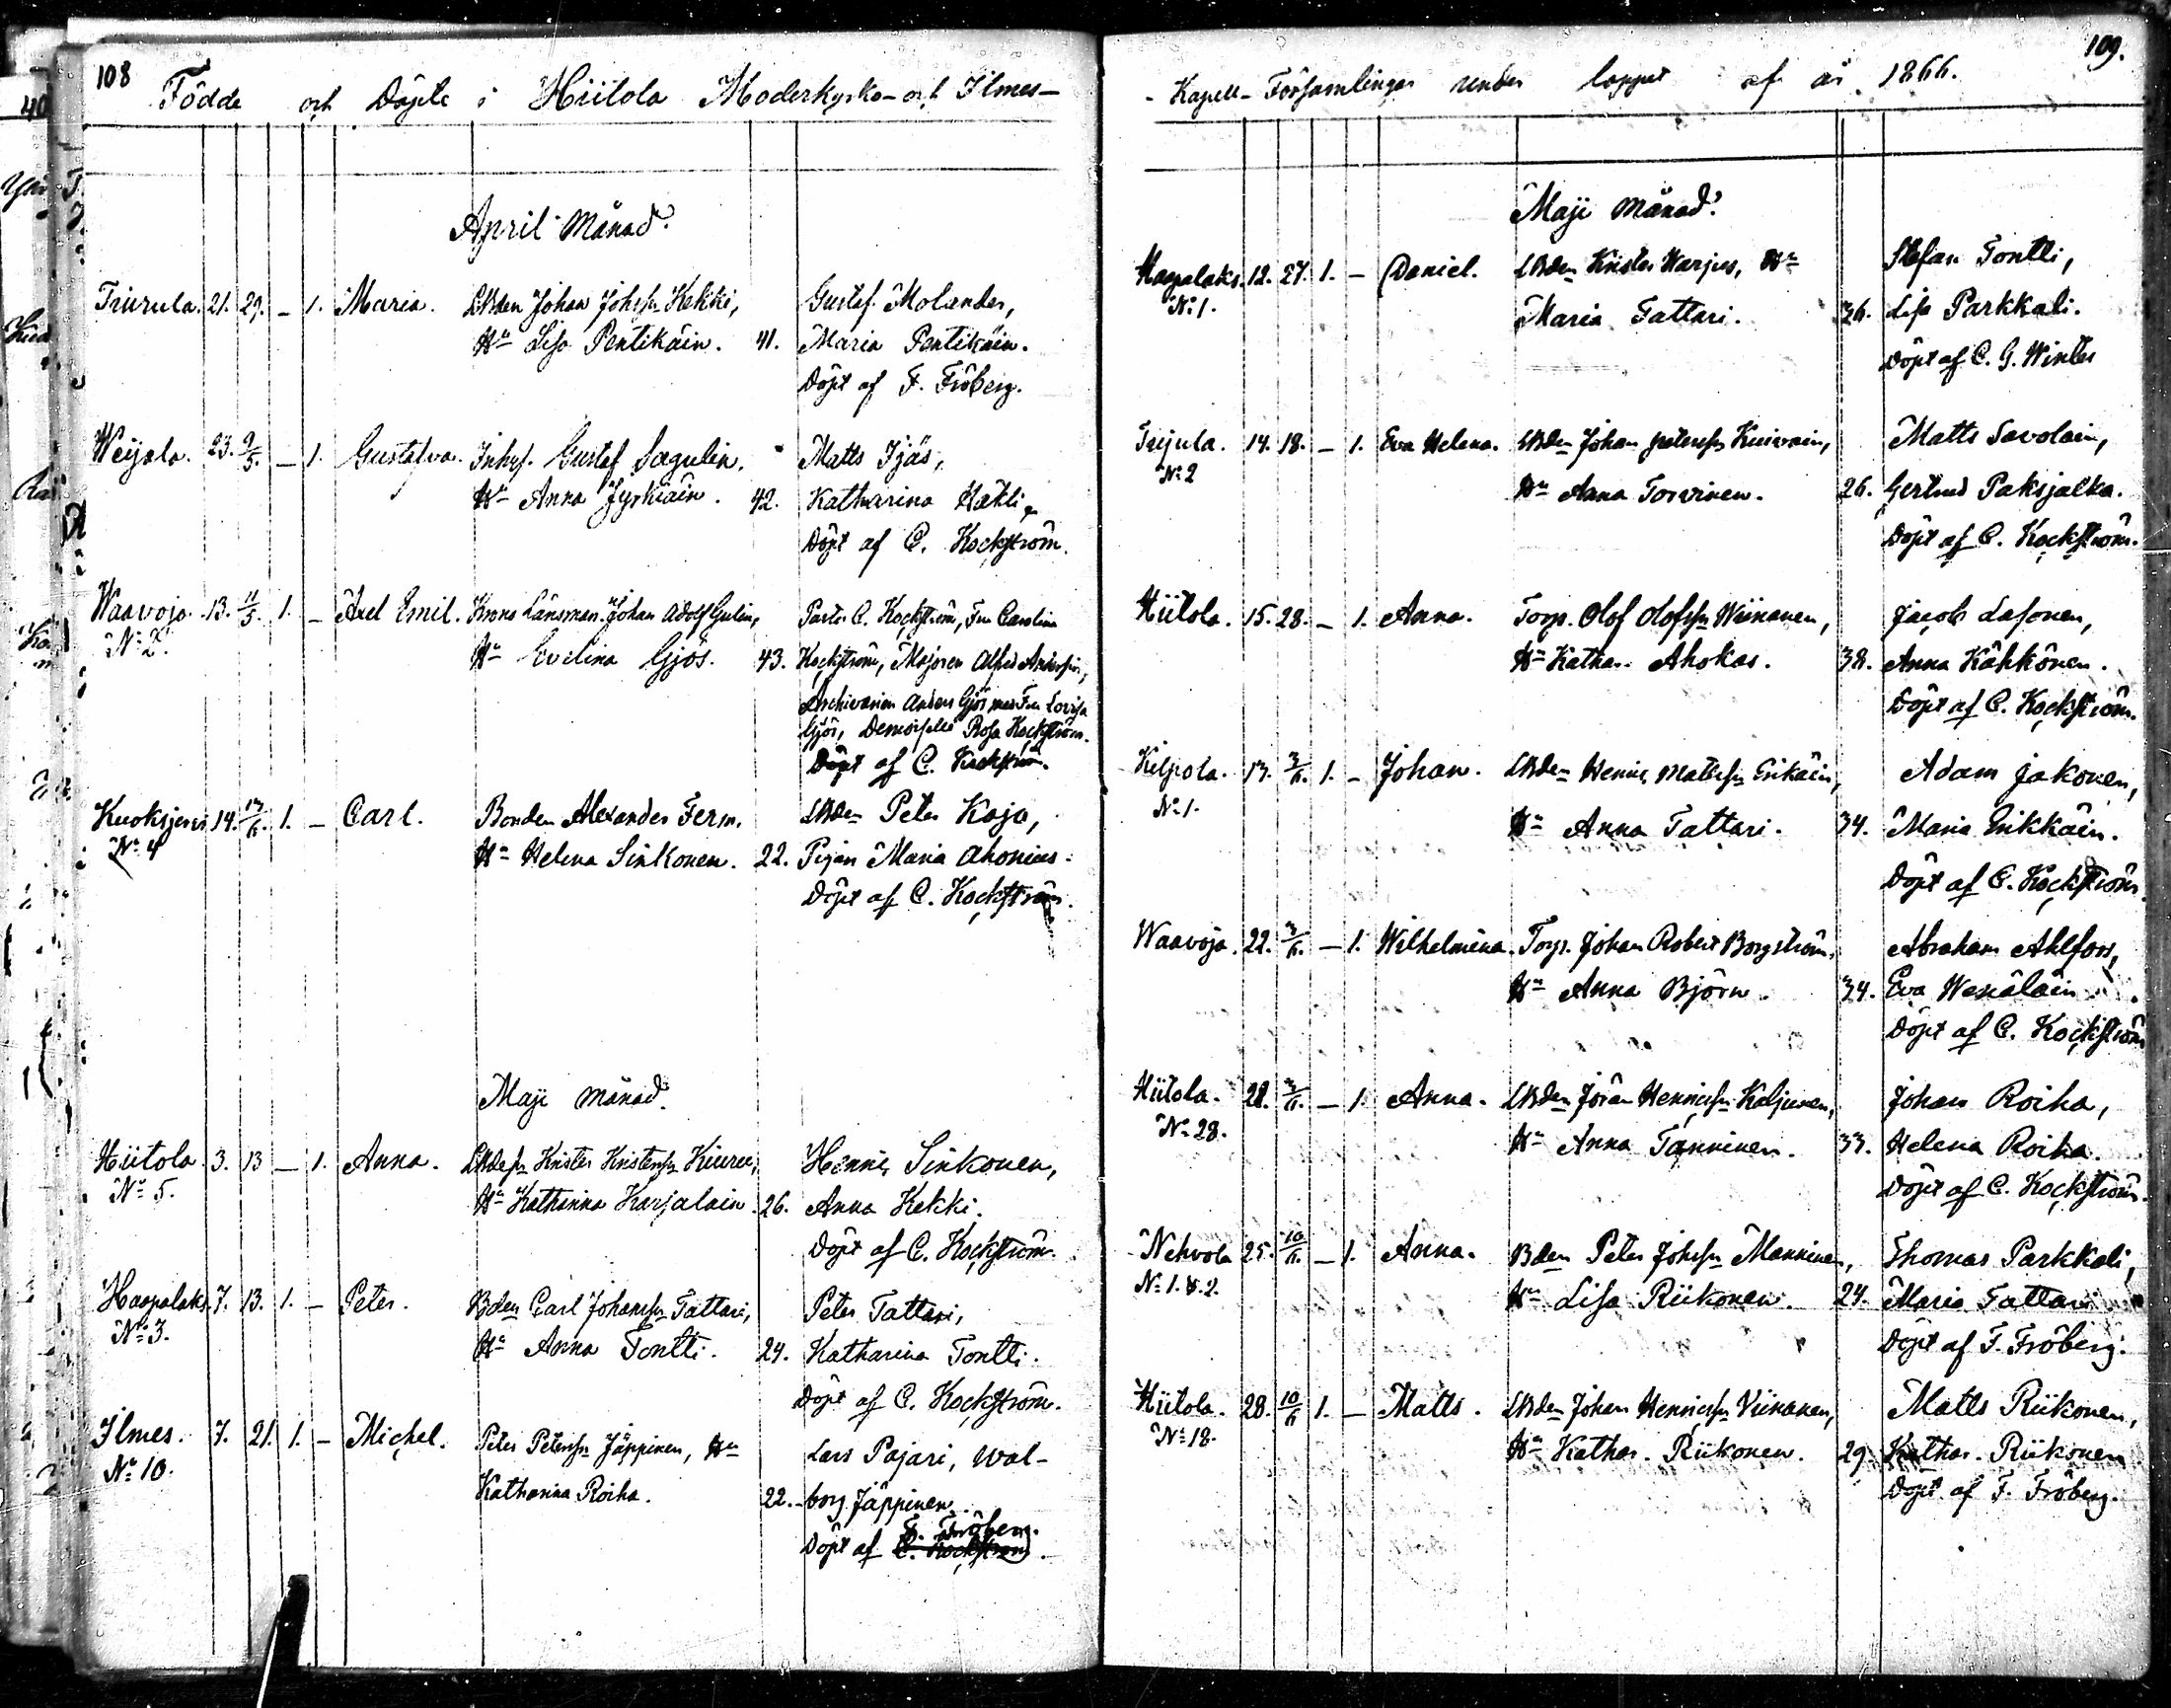 108
Födde och Döpte i Hiitola Moderkyrko- och Ilmes-
April månad.
Tiurula. 21. 29. – 1. Maria. LBden Johan Johssn Kekki, Gustaf Molander,
Hu Lisa Pentikäin. 41. Maria Pentikäin.
Döpt af F. Fröberg.
Weijala. 23. 9/5. – 1. Gustafva. Inhys. Gustaf Sagulin, Matts Ijäs,
Hu Anna Jyrkiäin. 42. Katharina Häkli,
Döpt af C. Kockström.
Waavoja. 13. 11/5. 1. – Axel Emil. Krono Länsman Johan Adolf Gulin, Pastor C. Kockström, Fru Carolina
No 2. Hu Evelina Gjös. 43. Kockström, Majoren Alfred
Archivarien Anders Gjös, med Fru Lovisa
Gjös, Demoiselle Rosa Kockström.
Döpt af C. Kockström.
Kuoksjervi 14. 17/6. 1. – Carl. Bonden Alexander Ferm, LBden Peter Kaja,
No 4 Hu Helena Sinkonen. 22. Pigan Maria Ahonius.
Döpt af C. Kockström.
Maji månad.
Hiitola 3. 13 – 1. Anna. Krister Kristersn Kiuru, Hennr. Sinkonen,
No 5. Hu Katharina Karjalain. 26. Anna Kekki.
Döpt af C. Kockström.
Haapalaks 7. 13. 1. – Peter. Bden Carl Johanssn Tattari, Peter Tattari,
No 3. Hu Anna Tontti. 24. Katharina Tontti.
Döpt af C. Kockström.
Ilmes. 7. 21. 1. – Michel. Peter Peterssn Jäppinen, Hu Lars Pajari, Wal-
No 10. Katharina Roiha. 22. -borg Jäppinen.
F. Fröberg.
Döpt af C. Kockström.
109.
- Kapell- Församlingar under loppet af år 1866.
Maji månad.
Haapalaks. 12. 27. 1. – Daniel. LBden Krister Warjus, Hu Stefan Tontti,
No 1. Maria Tattari. 36. Lisa Parkkali.
Döpt af C. G. Winter
14. 18. – 1. Eva Helena. LBden Johan Peterssn Kuivain, Matts Savolain,
No 2 Hu Anna Torvinen. 26. Gertrud Paksjalka.
Döpt af C. Kockström.
Hiitola. 15. 28. – 1. Anna. Torp. Olof Olofssn Wiinanen, Jacob Lasonen,
Hu Kathar. Ahokas. 38. Anna Kähkönen.
Döpt af C. Kockström.
Kilpola. 17. 3/6. 1. – Johan. LBden Hennr. Mattssn Erikäin, Adam Jakonen,
No 1. Hu Anna Tattari. 34. Maria Erikkäin.
Döpt af C. Kockström.
Waavoja. 22. 3/6. – 1. Wilhelmina. Torp. Johan Robert Borgström, Abraham Ahlfors,
Hu Anna Björn. 34. Eva Wenäläin.
Döpt af C. Kockström
Hiitola. 28. 3/6. – 1. Anna. LBden Jöran Hennrssn Kaljunen, Johan Roiha,
No 28. Hu Anna Tanninen. 33. Helena Roiha.
Döpt af C. Kockström.
Nehvola 25. 10/6. – 1. Anna. Bden Peter Johssn Manninen, Thomas Parkkali,
No 1. & 2. Hu Lisa Riikonen. 24. Maria Tattari
Döpt af F. Fröberg.
Hiitola. 28. 10/6 1. – Matts. LBden Johan Hennrssn Viinanen, Matts Riikonen,
No 18. Hu Kathar. Riikonen. 29. Kathar. Riikonen
Döpt af F. Fröberg.